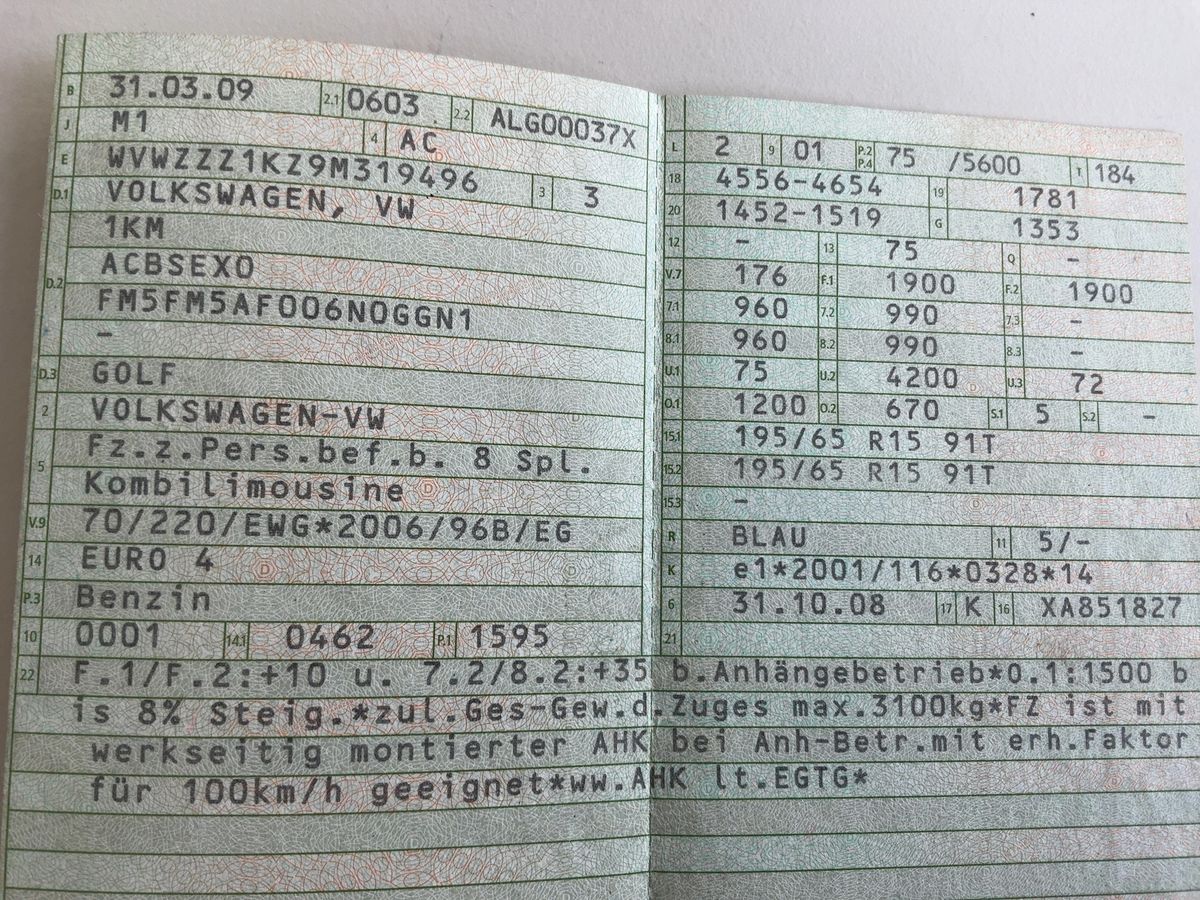 B 31.03.09 2.1 0603 2.2 ALG00037X
J M1 4 AC
E WVWZZZ1KZ9M319496 3 3
D.1 VOLKSWAGEN, VW
D.2 1KM
ACBSEX0
FM5FM5AF006N0GGN1
–
D.3 GOLF
2 VOLKSWAGEN-VW
5 Fz.z.Pers.bef.b. 8 Spl.
Kombilimousine
V.9 70/220/EWG*2006/96B/EG
14 EURO 4
P.3 Benzin
10 0001 14.1 0462 P.1 1595
L 2 9 01 P.2 P.4 75 /5600 T 184
18 4556-4654 19 1781
20 1452-1519 G 1353
12 – 13 75 Q –
V.7 176 F.1 1900 F.2 1900
7.1 960 7.2 990 7.3 –
8.1 960 8.2 990 8.3 –
U.1 75 U.2 4200 U.3 72
O.1 1200 O.2 670 S.1 5 S.2 –
15.1 195/65 R15 91T
15.2 195/65 R15 91T
15.3 –
R BLAU 11 5/-
K e1*2001/116*0328*14
6 31.10.08 17 K 16 XA851827
21
22 F.1/F.2:+10 u. 7.2/8.2:+35 b.Anhängebetrieb*0.1:1500 b
is 8% Steig.*zul.Ges-Gew.d.Zuges max.3100kg*FZ ist mit
werkseitig montierter AHK bei Anh-Betr.mit erh.Faktor
für 100km/h geeignet*ww.AHK lt.EGTG*